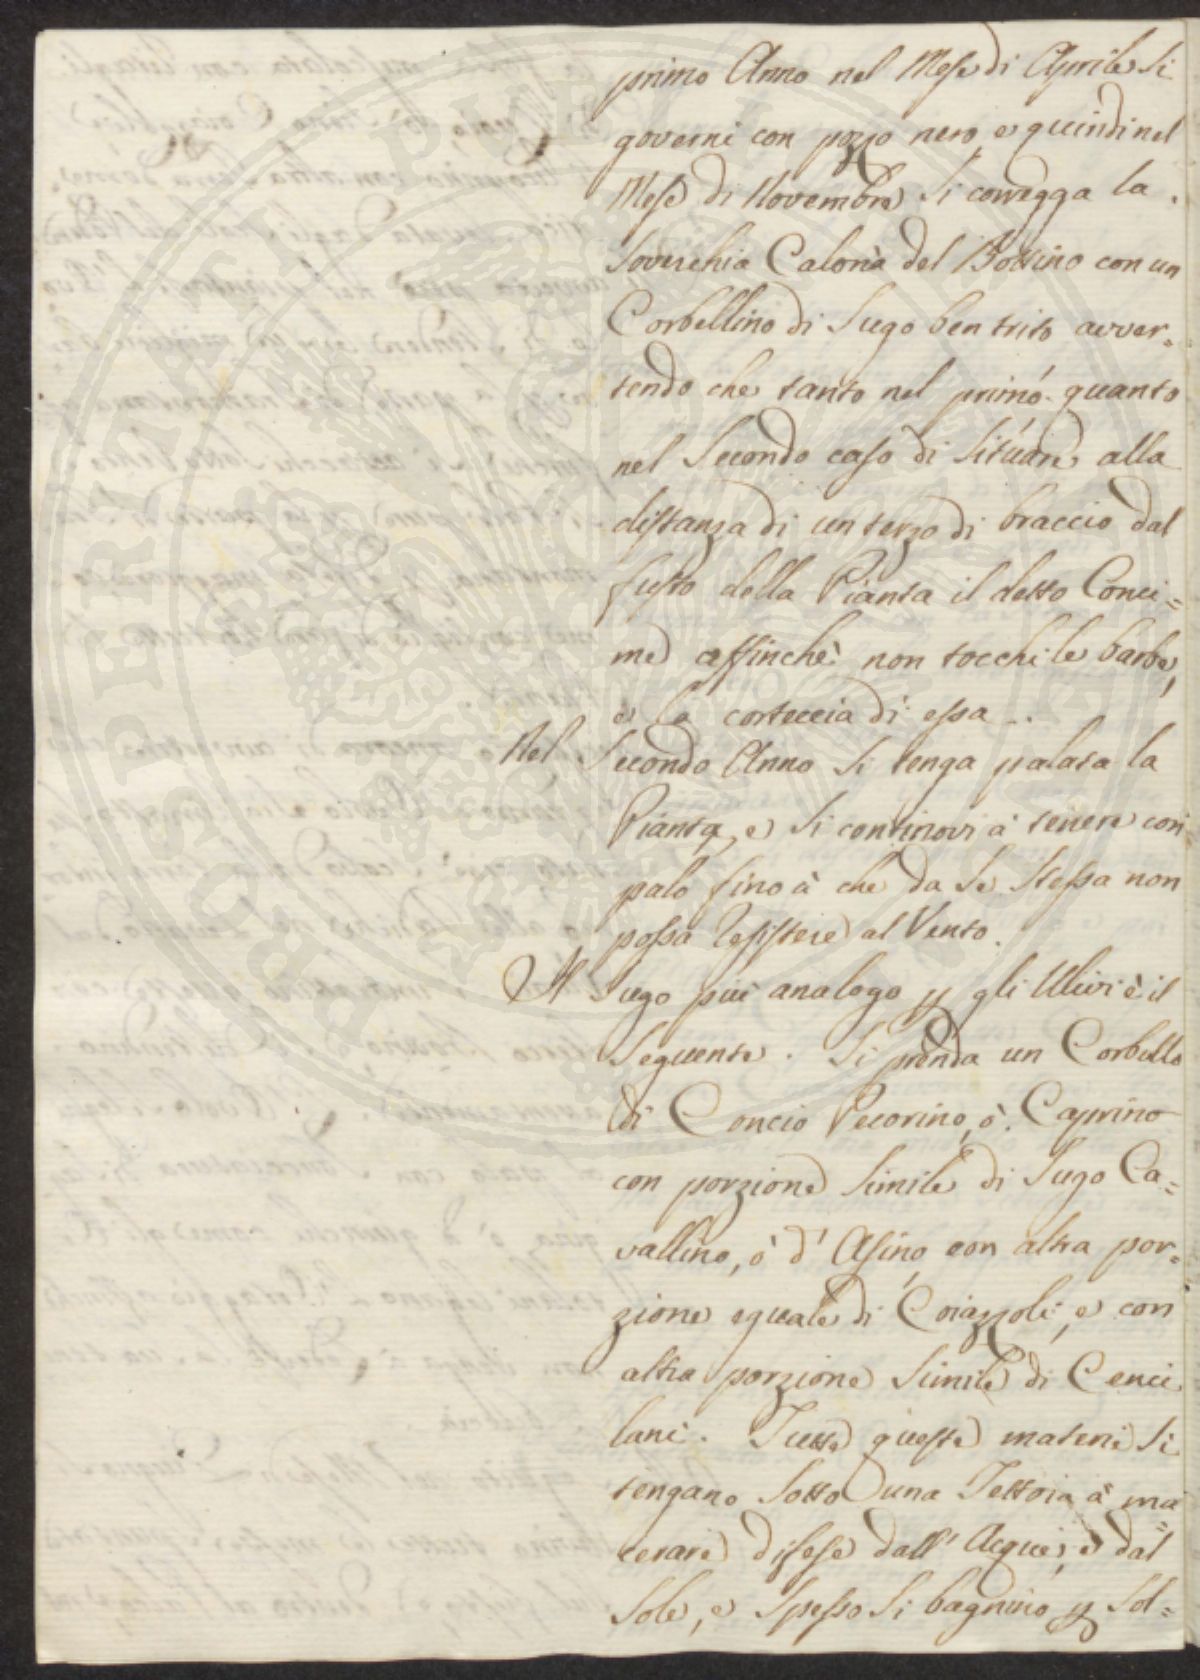 primo Anno nel Mese di Aprile si
governi con pozzo nero, e quindi nel
Mese di Novembre si corregga la
soverchia Caloria del Bottino con un
Corbellino di Sugo ben trito avver=
tendo che tanto nel primo quanto
nel Secondo caso di situare alla
distanza di un terzo di braccio dal
fusto della Pianta il detto Conci=
me affinchè non tocchi le barbe,
e la corteccia di essa ..
Nel Secondo Anno si tenga palata la
Pianta, e si continovi à tenere con
palo fino à che da se stessa non
possa resistere al Vento.
Il Sugo più analogo p gli Ulivi è il
Seguente. Si prenda un Corbello
di Concio Pecorino, ò Caprino
con porzione simile di Sugo Ca=
vallino, ò d' Asino, con altra por=
zione eguale di Coiazzoli, e con
altra porzione simile di Cenci
lani. Tutte queste materie si
tengano sotto una Tettoia à ma=
cerare difese dall' Acque, e dal
Sole, e spesso si bagnino p sol=
PROSPERITATI PUBLICAE